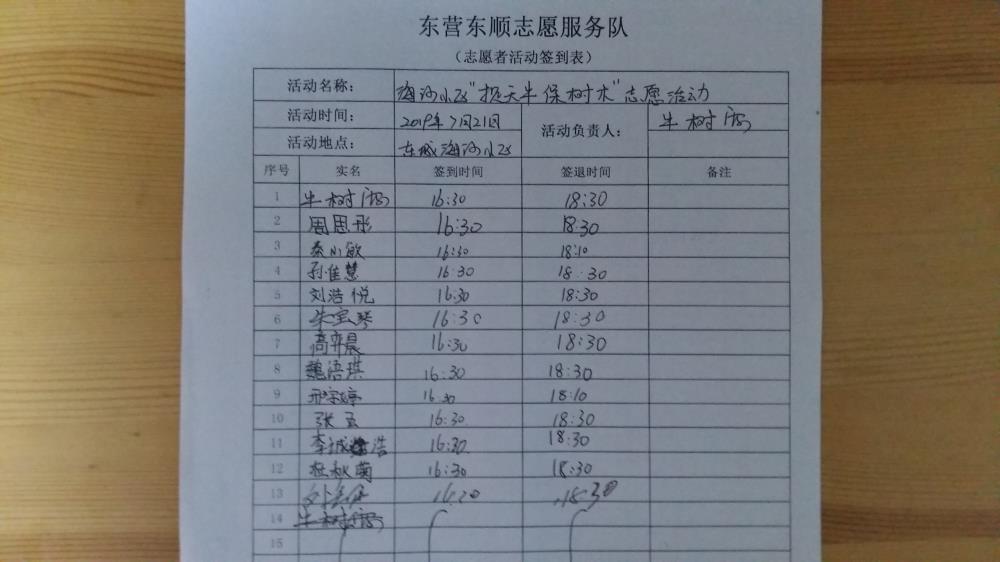 东营东顺志愿服务队
（志愿者活动签到表）
活动名称： 海河小区"损天牛 保树木"志愿活动
活动时间： 2019年7月21日 活动负责人： 牛树
活动地点： 东城海河小区
序号 实名 签到时间 签退时间 备注
1 牛树 16:30 18:30
2 周思彤 16:30 18:30
3 秦小敏 16:30 18:10
4 孙佳慧 16:30 18:30
5 刘浩悦 16:30 18:30
6 朱宝琴 16:30 18:30
7 高弈晨 16:30 18:30
8 魏语琪 16:30 18:30
9 16:30 18:10
10 张 16:30 18:30
11 李诚浩 16:30 18:30
12 杜秋菊 16:30 18:30
13 18:30
14 牛树
15